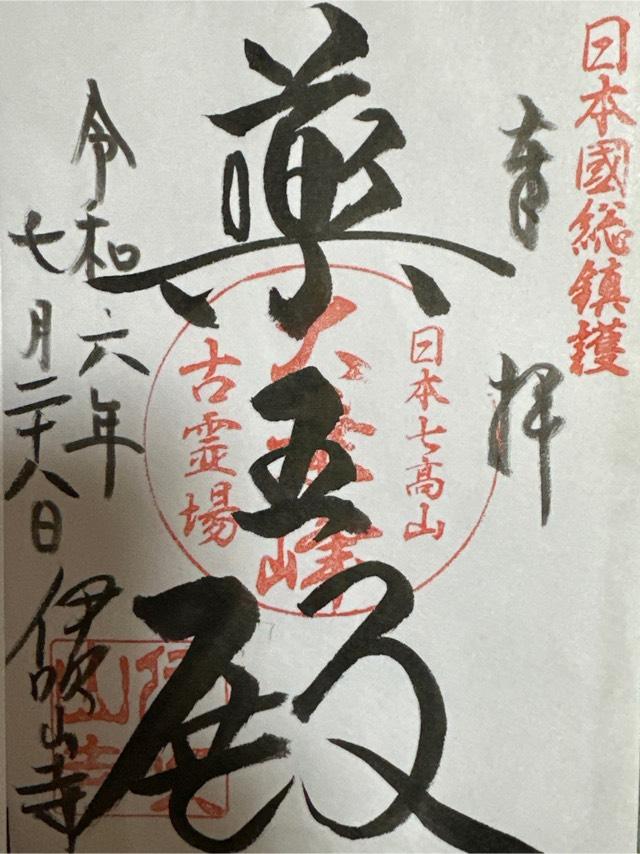 日本國総鎮護
奉拝
日本七高山
大乗峰
古霊場
薬王殿
令和六年
七月二十八日
伊吹山寺
伊吹
山寺